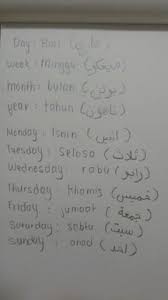 Day: Hari
week: Minggu
month: bulan
year: tahun (تاهون)
Monday: Isnin (اثنين)
Tuesday: Selasa (ثلاث)
Wednesday: rabu (رابو)
Thursday: Khamis (خميس)
Friday: jumaat (جمعة)
Saturday: sabtu (سبت)
Sunday: ahad (احد)